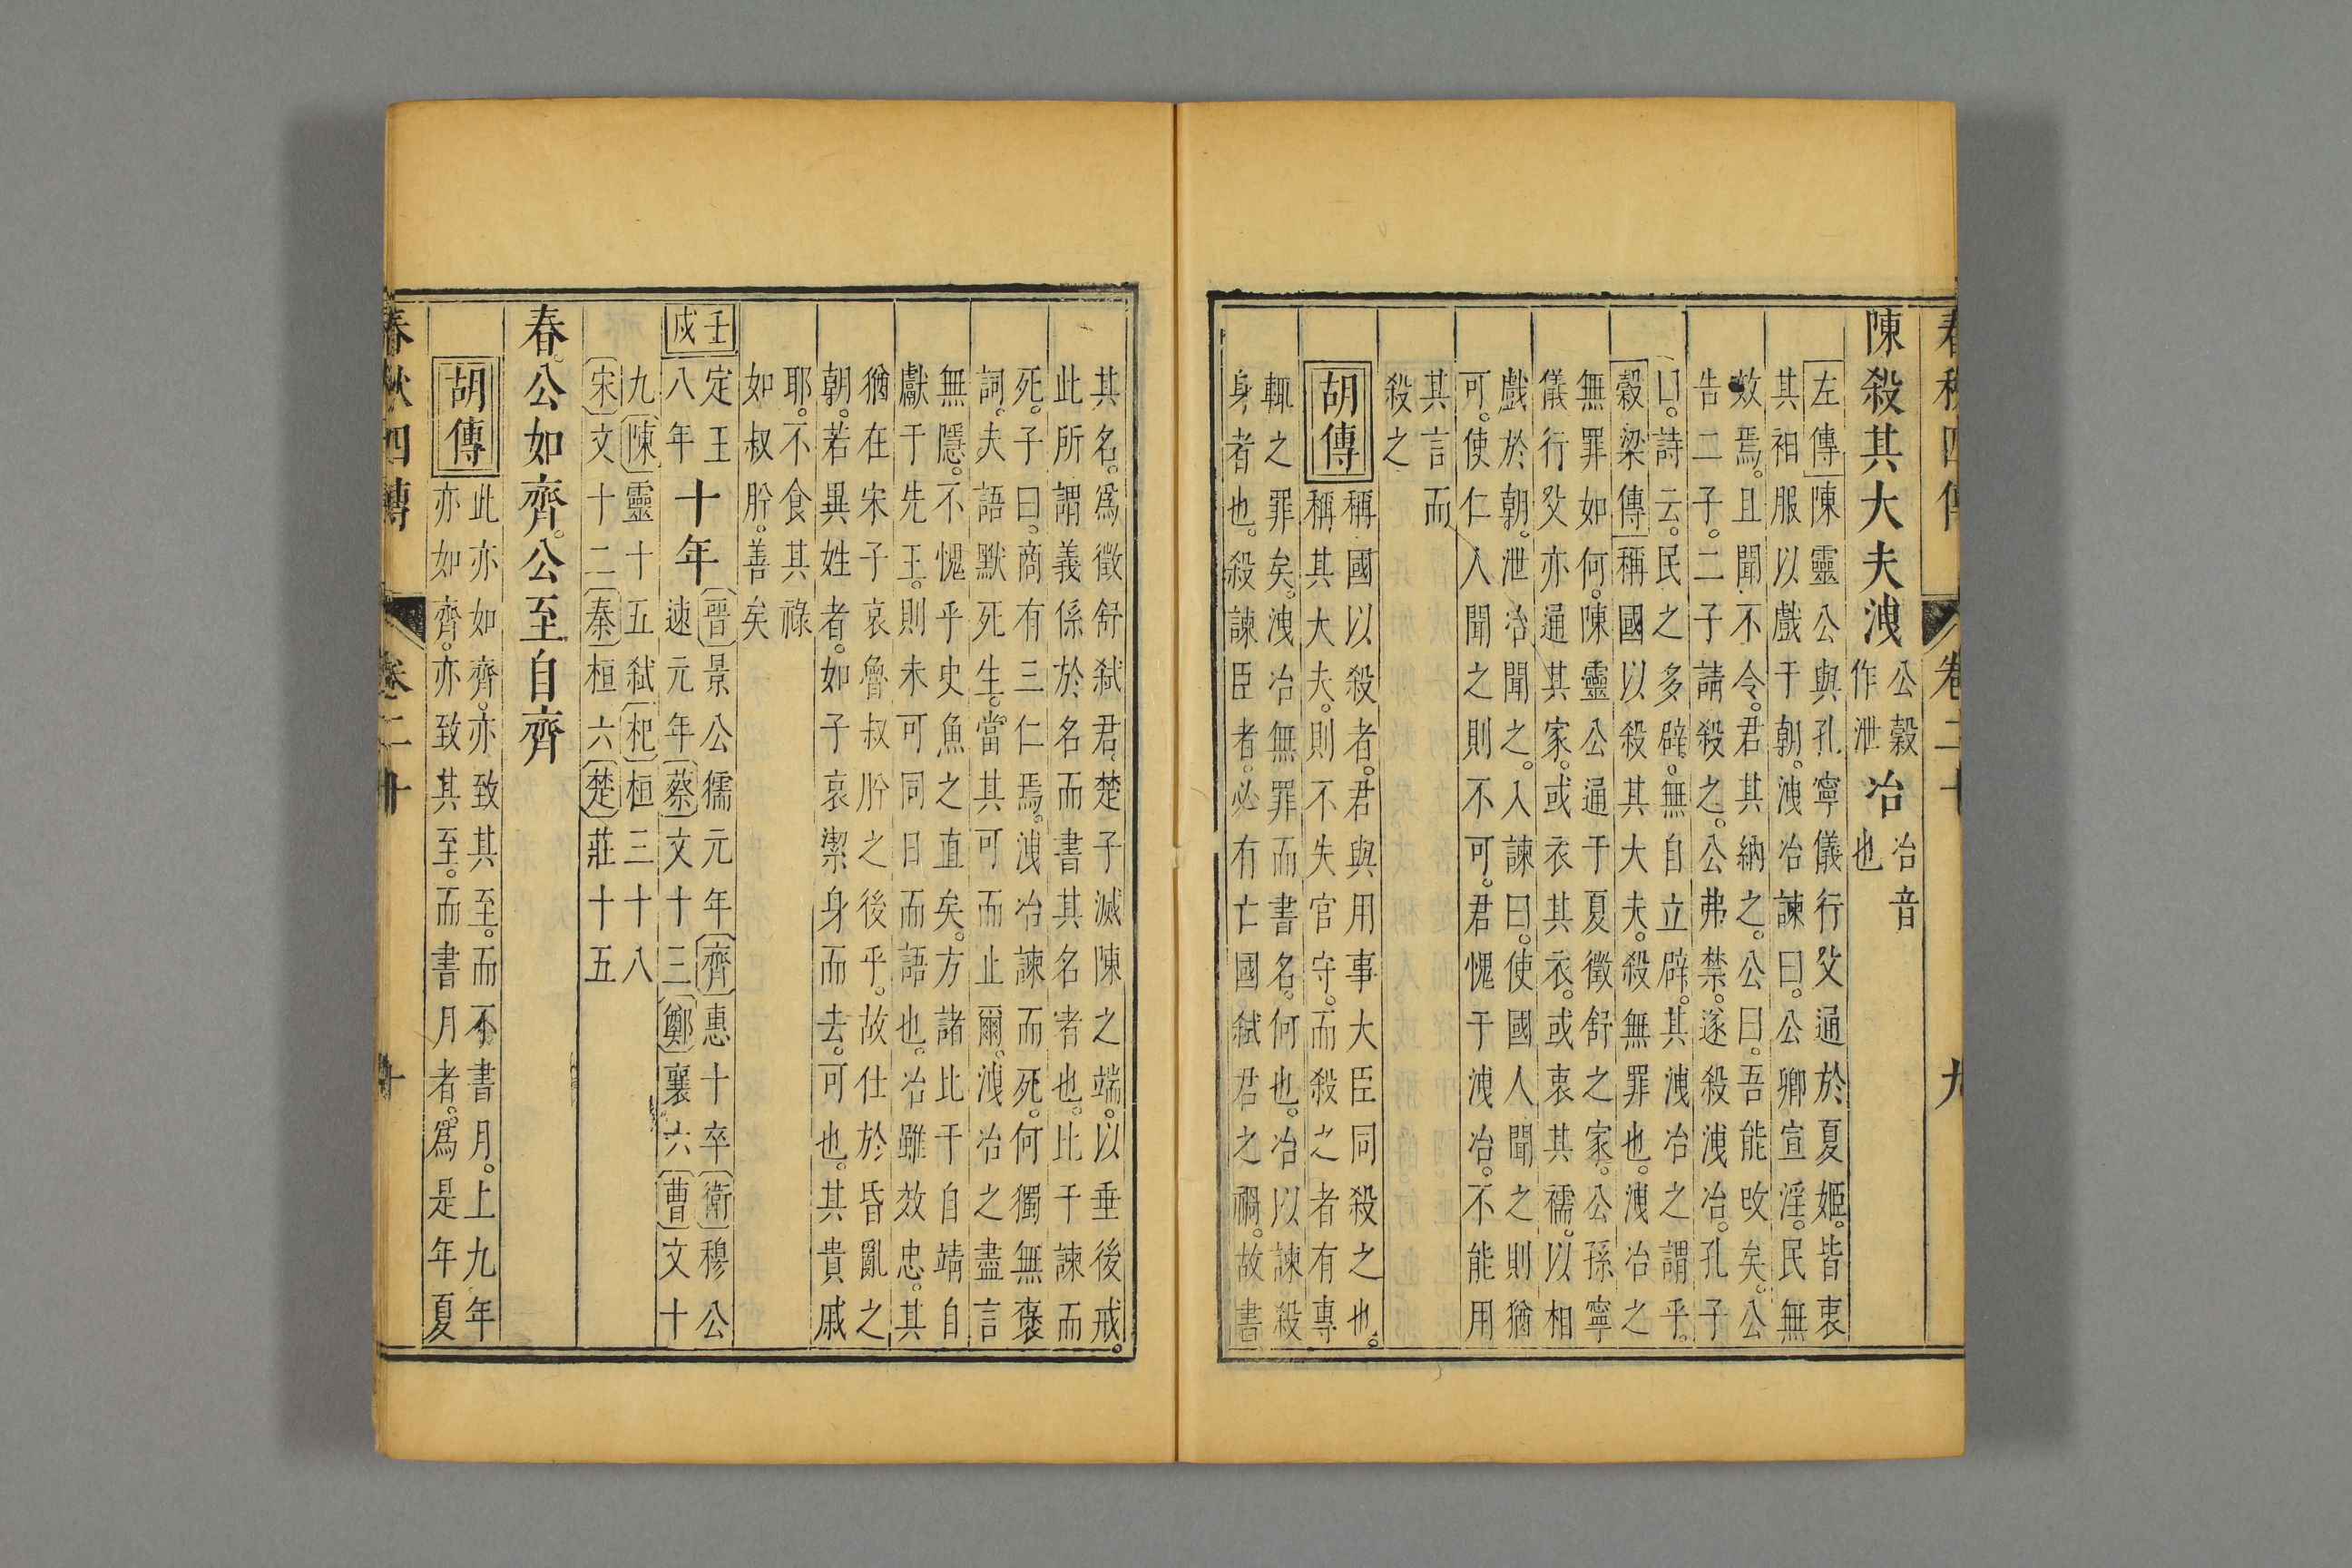 春秋四傳 卷二十 九
陳殺其大夫洩公穀作泄冶冶音也
左傳陳靈公與孔寧儀行父通於夏姬。皆衷
其衵服以戲于朝。洩冶諫曰。公卿宣淫。民無
效焉。且聞不令。君其納之。公曰。吾能改矣。公
告二子。二子請殺之。公弗禁。遂殺洩冶。孔子
曰。詩云。民之多辟。無自立辟。其洩冶之謂乎。
穀梁傳稱國以殺其大夫。殺無罪也。洩冶之
無罪如何。陳靈公通于夏徵舒之家。公孫寧
儀行父亦通其家。或衣其衣。或衷其襦。以相
戲於朝。泄冶聞之。入諫曰。使國人聞之則猶
可。使仁人聞之則不可。君愧于洩冶。不能用
其言而
殺之
胡傳稱國以殺者。君與用事大臣同殺之也。
稱其大夫。則不失官守。而殺之者有專
輒之罪矣。洩冶無罪而書名。何也。冶以諫殺
身者也。殺諫臣者。必有亡國弒君之禍。故書
其名。爲徵舒弒君。楚子滅陳之端。以垂後戒。
此所謂義係於名而書其名者也。比干諫而
死。子曰。商有三仁焉。洩冶諫而死。何獨無褒
詞。夫語默死生。當其可而止爾。洩冶之盡言
無隱。不愧乎史魚之直矣。方諸比干自靖自
獻于先王。則未可同日而語也。冶雖效忠。其
猶在宋子哀魯叔肸之後乎。故仕於昏亂之
朝。若異姓者。如子哀潔身而去。可也。其貴戚
耶。不食其祿
如叔肸。善矣
壬戌
定王八年十年晉景公獳元年齊惠十卒衛穆公
速元年蔡文十三鄭襄六曹文十
九陳靈十五弒杞桓三十八
宋文十二秦桓六楚莊十五
春。公如齊。公至自齊
胡傳此亦如齊。亦致其至。而不書月。上九年
亦如齊。亦致其至。而書月者。爲是年夏
春秋四傳 卷二十 十